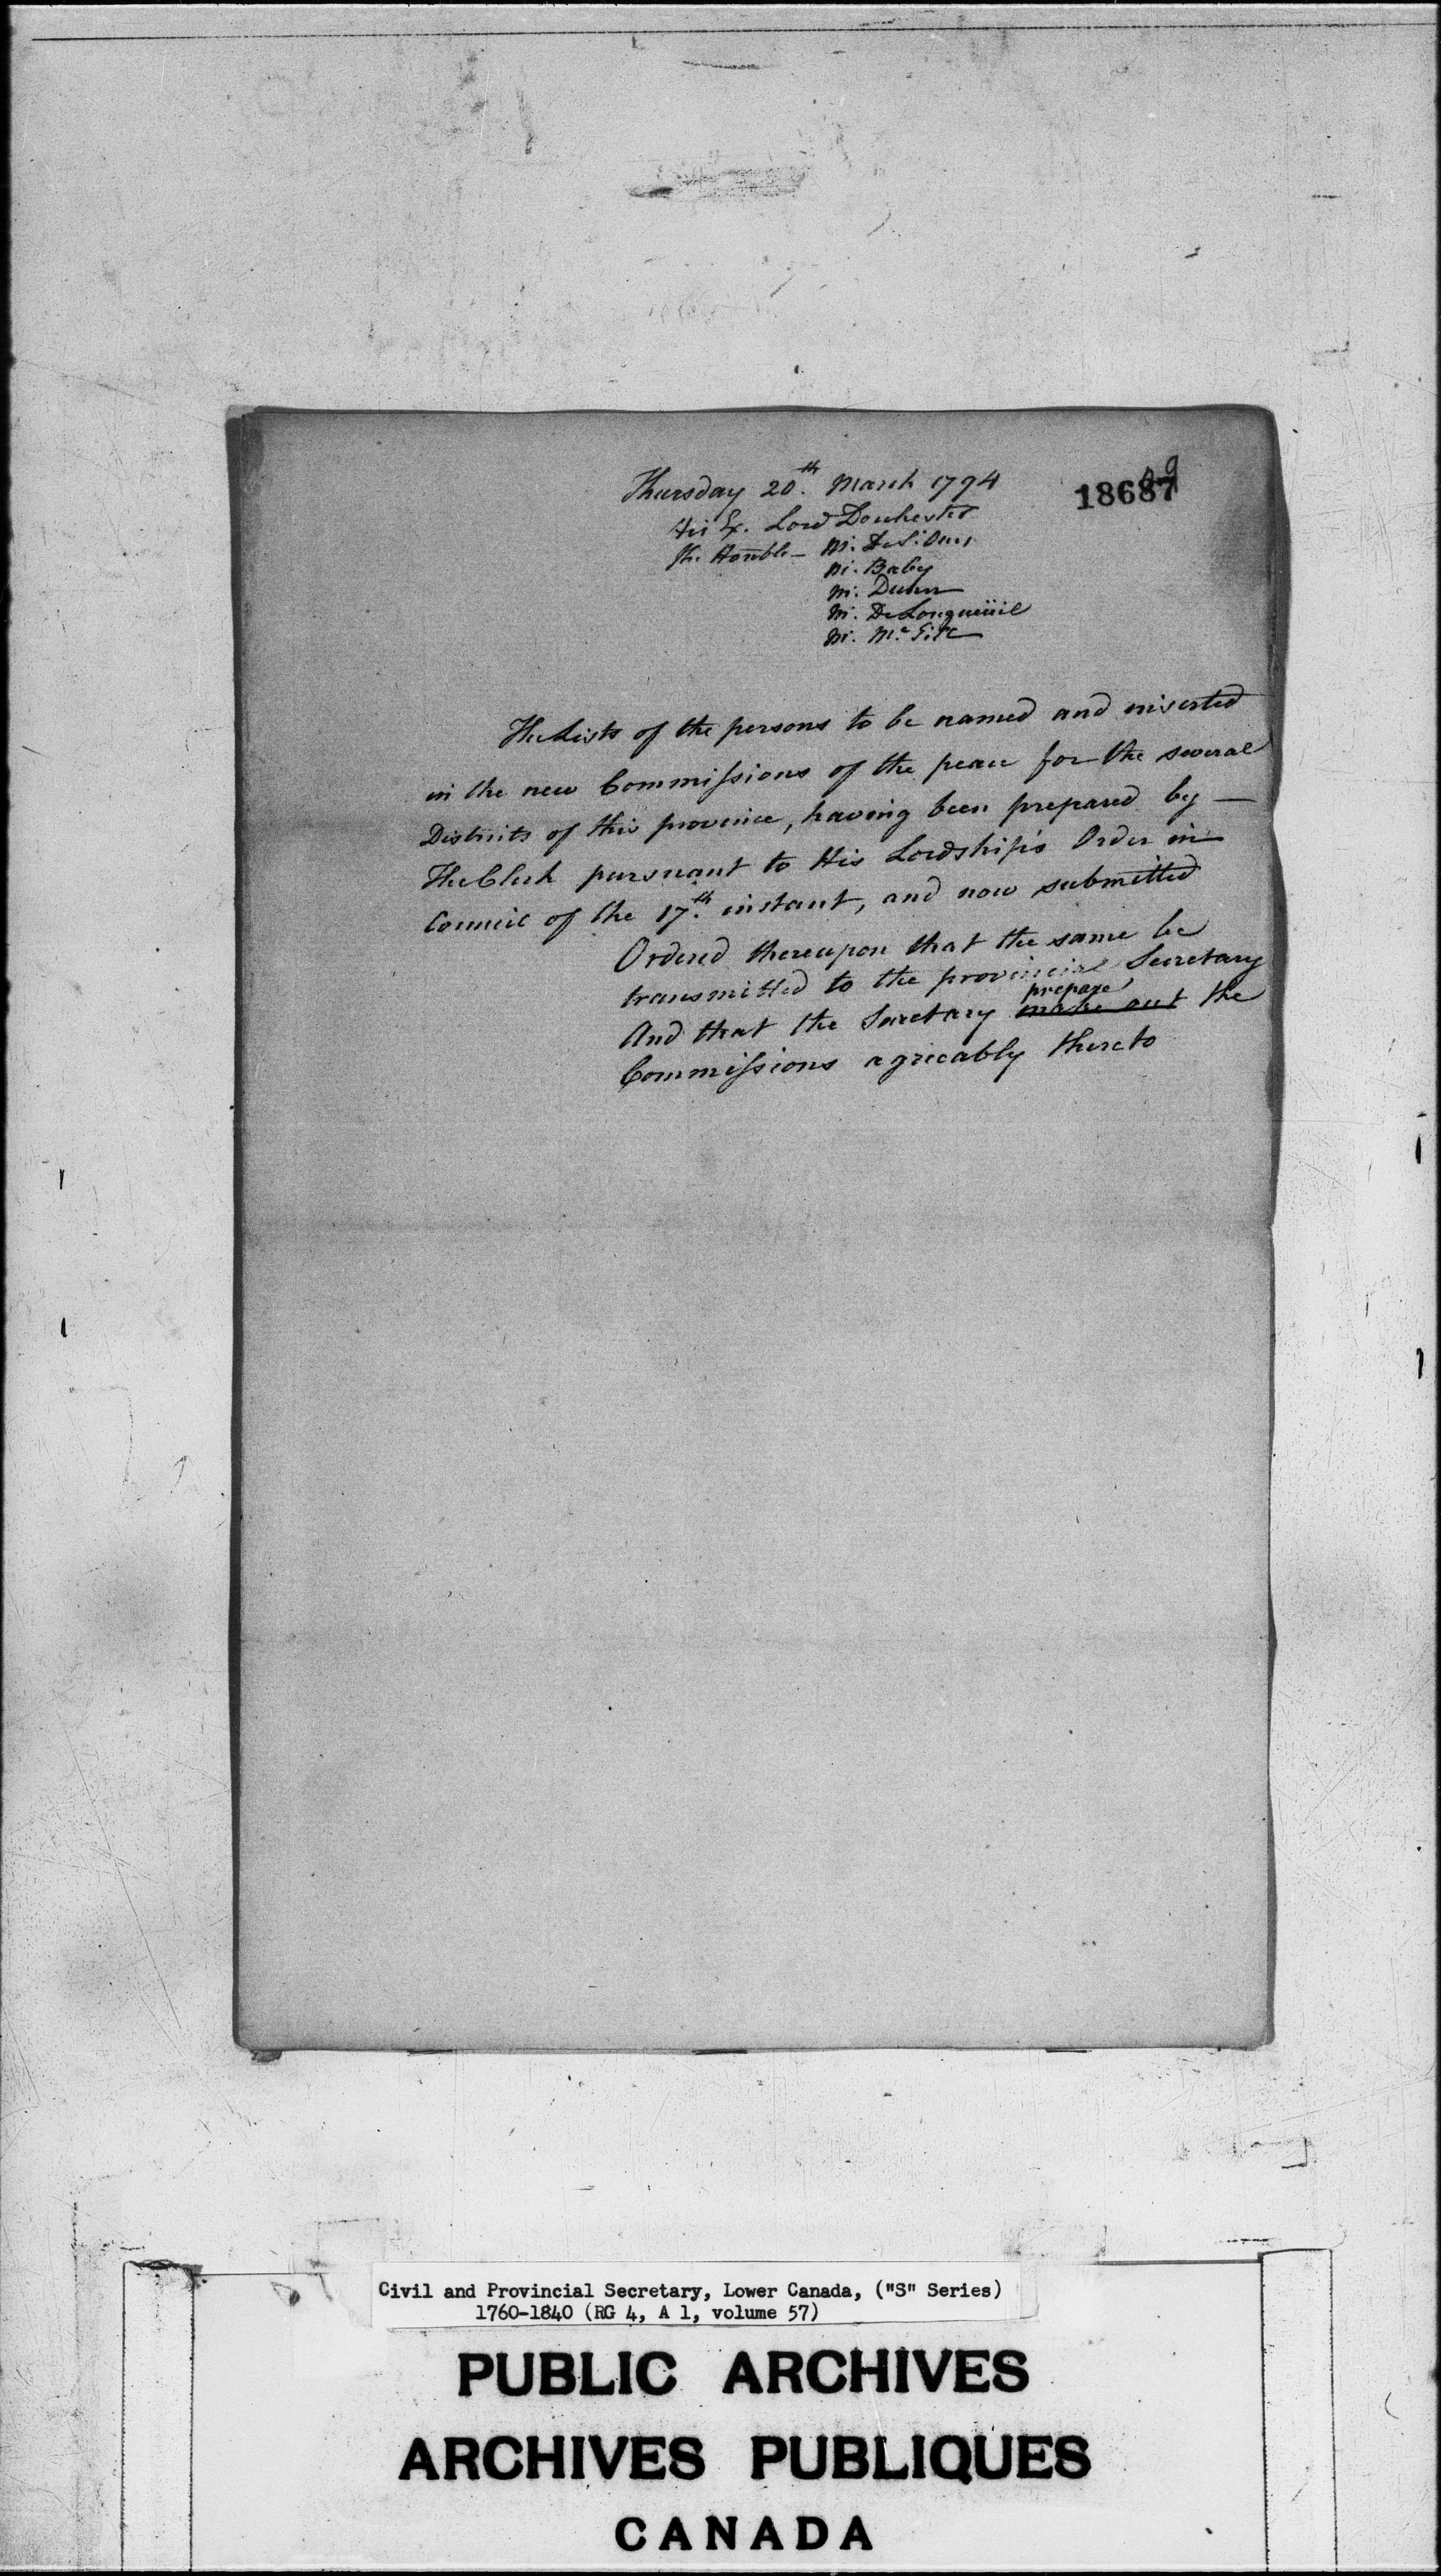 Thursday 20th. March 1794
18687
His Ex. Lord Dorchester
The Honble — Mr. De St. Ours
Mr. Baby
Mr. Dunn
Mr. De Longueüil
Mr. McGill
The Lists of the persons to be named and inserted
in the new Commissions of the peace for the several
Districts of this province, having been prepared by —
The Clerk pursuant to His Lordship's Order in
Council of the 17th. instant, and now submitted
Ordered thereupon that the same be
transmitted to the provincial Secretary
prepare
And that the Secretary make out the
Commissions agreeably thereto
Civil and Provincial Secretary, Lower Canada, ("S" Series)
1760-1840 (RG 4, A 1, volume 57)
PUBLIC ARCHIVES
ARCHIVES PUBLIQUES
CANADA